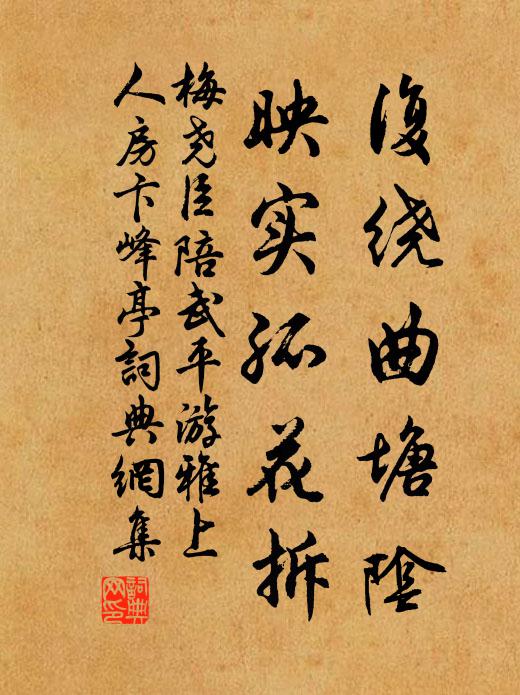 復绕曲塘陰
映实孤花拆
梅尧臣陪武平游雅上
人房卞峰亭詞典網集
詞典网印